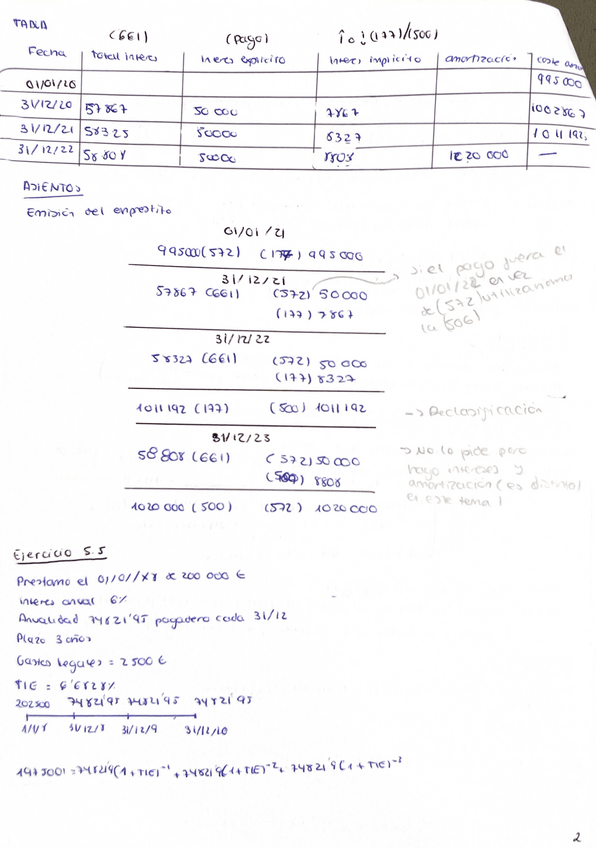 TABLA
(661) (pago) i o i (177)/(500)
Fecha total interes interes explicito interes implicito amortización coste amo
01/01/20 995000
31/12/20 57867 50 000 7867 1002867
31/12/21 58325 50000 8327 1011192,
31/12/22 58 808 50000 8808 1020 000 —
ASIENTOS
Emisión del emprestito
01/01/21
995000 (572) (177) 995 000
31/12/21
57867 (661) (572) 50 000
(177) 7867
→ si el pago fuera el
01/01/22 en vez
de (572) utilizariamos
la 506)
31/12/22
58327 (661) (572) 50 000
(177) 8327
1011 192 (177) (500) 1011192 → Reclasificación
31/12/23
58 808 (661) (572) 50 000
(500) 8808
→ No lo pide pero
hago intereses y
amortización (es distinto)
en este tema)
1020 000 (500) (572) 1020 000
Ejercicio 5.5
Prestamo el 01/01/X8 de 200 000 €
interes anual 6%
Anualidad 74821'95 pagadero cada 31/12
Plazo 3 años
Gastos legales = 2 500 €
TIE = 6'6828%
202500 74821'95 74821'95 74821'95
1/1/8 31/12/8 31/12/9 31/12/10
197500 = 74821'9(1+TIE)⁻¹ + 74821'9(1+TIE)⁻² + 74821'9(1+TIE)⁻³
2